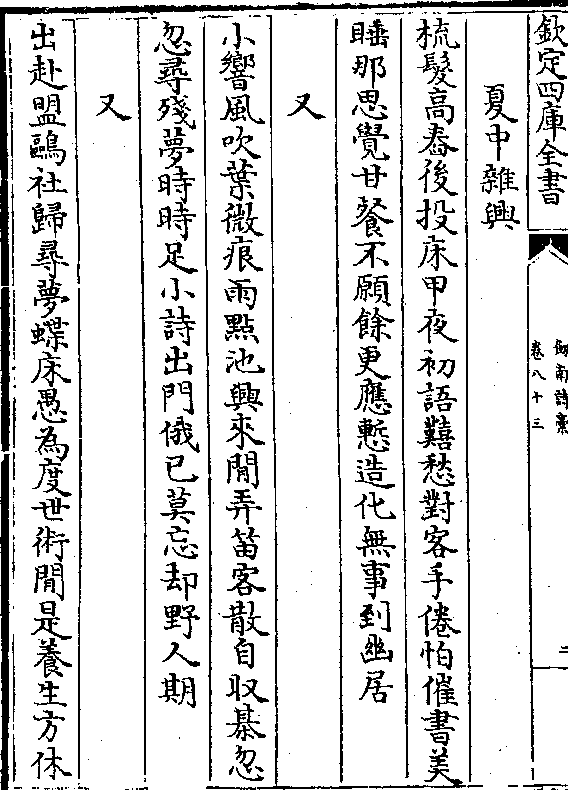 欽定四庫全書
劒南詩藁
卷八十三
二
夏中雜興
梳髮髙舂後投床甲夜初語囏愁對客手倦怕催書美
睡那思覺甘餐不願餘更應慙造化無事到幽居
又
小響風吹葉微痕雨㸃池興來閒弄笛客散自収棊忽
忽尋殘夢時時足小詩出門俄已莫忘却野人期
又
出赴盟鷗社歸尋夢蝶床愚為度世術閒是養生方休